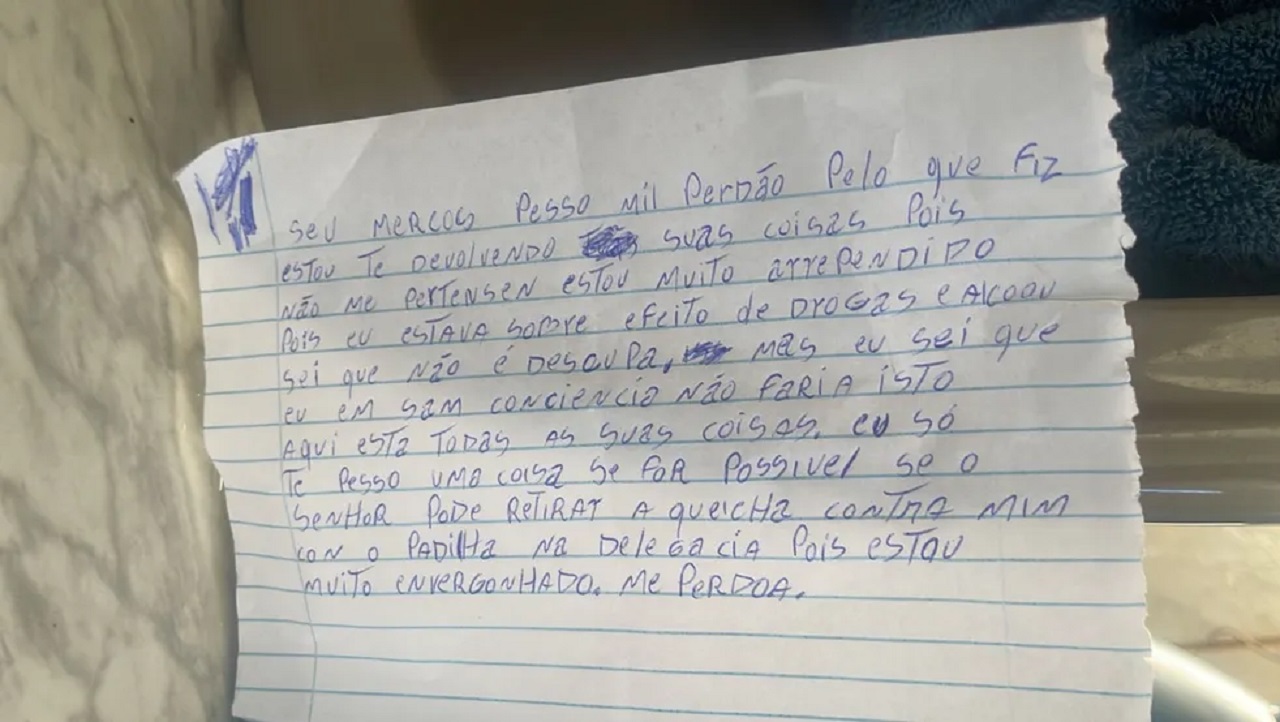 seu Mercos Pesso mil Perdão Pelo que Fiz
estou Te Devolvendo suas coisas Pois
não me Pertensen estou muito arrependido
Pois eu estava sobre efeito de Drogas e Alcoou
sei que não é Desculpa, mas eu sei que
eu em sam conciencia não faria isto
Aqui esta Todas as suas coisas. eu só
Te Pesso uma coisa se for Possivel se o
senhor Pode Retirar a queicha contra mim
con o Padilha na Delegacia Pois estou
muito envergonhado. me Perdoa.